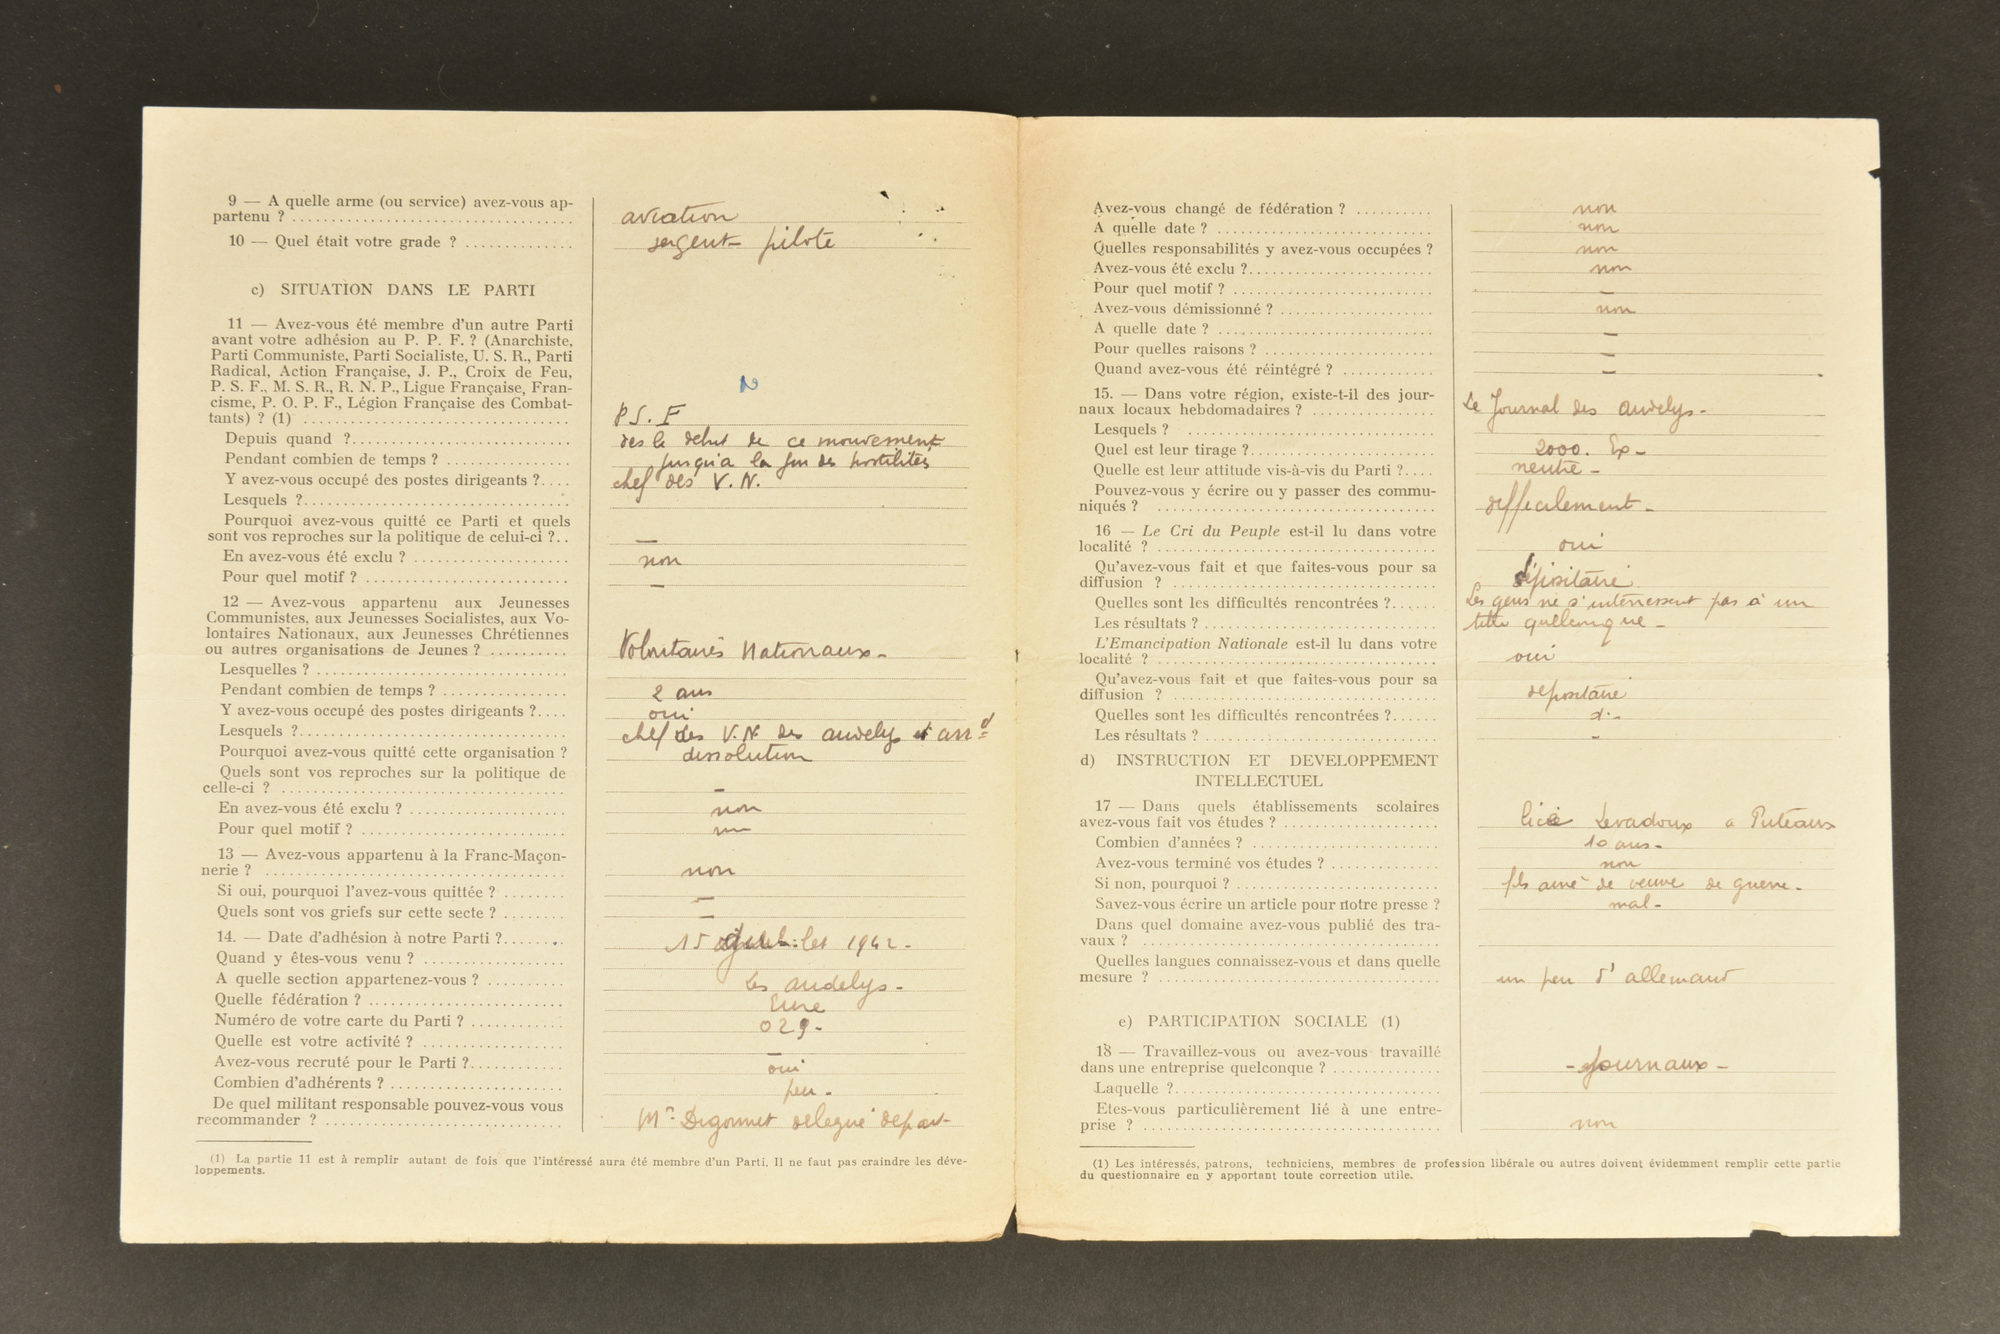 9 — A quelle arme (ou service) avez-vous ap-
partenu ? aviation
10 — Quel était votre grade ? sergent pilote
c) SITUATION DANS LE PARTI
11 — Avez-vous été membre d'un autre Parti
avant votre adhésion au P. P. F. ? (Anarchiste,
Parti Communiste, Parti Socialiste, U. S. R., Parti
Radical, Action Française, J. P., Croix de Feu,
P. S. F., M. S. R., R. N. P., Ligue Française, Fran-
cisme, P. O. P. F., Légion Française des Combat-
tants) ? (1) P.S.F
Depuis quand ? des le debut de ce mouvement
Pendant combien de temps ? jusqu'a la fin des hostilités
Y avez-vous occupé des postes dirigeants ? chef des V.N.
Lesquels ?
Pourquoi avez-vous quitté ce Parti et quels
sont vos reproches sur la politique de celui-ci ? —
En avez-vous été exclu ? non
Pour quel motif ? —
12 — Avez-vous appartenu aux Jeunesses
Communistes, aux Jeunesses Socialistes, aux Vo-
lontaires Nationaux, aux Jeunesses Chrétiennes
ou autres organisations de Jeunes ? Volontaires Nationaux -
Lesquelles ?
Pendant combien de temps ? 2 ans
Y avez-vous occupé des postes dirigeants ? oui
Lesquels ? chef des V.N. des andelys et arrd
Pourquoi avez-vous quitté cette organisation ? dissolution
Quels sont vos reproches sur la politique de
celle-ci ? —
En avez-vous été exclu ? non
Pour quel motif ?
13 — Avez-vous appartenu à la Franc-Maçon-
nerie ? non
Si oui, pourquoi l'avez-vous quittée ? —
Quels sont vos griefs sur cette secte ? —
14. — Date d'adhésion à notre Parti ? 15 juillet 1942 -
Quand y êtes-vous venu ?
A quelle section appartenez-vous ? Les andelys -
Quelle fédération ? Eure
Numéro de votre carte du Parti ? 029 -
Quelle est votre activité ? —
Avez-vous recruté pour le Parti ? oui
Combien d'adhérents ? peu -
De quel militant responsable pouvez-vous vous
recommander ? Mr délégué depart
(1) La partie 11 est à remplir autant de fois que l'intéressé aura été membre d'un Parti. Il ne faut pas craindre les déve-
loppements.
Avez-vous changé de fédération ? non
A quelle date ? non
Quelles responsabilités y avez-vous occupées ? non
Avez-vous été exclu ? non
Pour quel motif ? —
Avez-vous démissionné ? non
A quelle date ? —
Pour quelles raisons ? —
Quand avez-vous été réintégré ? —
15. — Dans votre région, existe-t-il des jour-
naux locaux hebdomadaires ? Le Journal des andelys -
Lesquels ?
Quel est leur tirage ? 2000. Ex -
Quelle est leur attitude vis-à-vis du Parti ? neutre -
Pouvez-vous y écrire ou y passer des commu-
niqués ? difficilement -
16 — Le Cri du Peuple est-il lu dans votre
localité ? oui
Qu'avez-vous fait et que faites-vous pour sa
diffusion ? dépositaire
Quelles sont les difficultés rencontrées ? Les gens ne s'interressent pas à un
Les résultats ? titre quelconque -
L'Emancipation Nationale est-il lu dans votre
localité ? oui
Qu'avez-vous fait et que faites-vous pour sa
diffusion ? depositaire
Quelles sont les difficultés rencontrées ?
Les résultats ? -
d) INSTRUCTION ET DEVELOPPEMENT
INTELLECTUEL
17 — Dans quels établissements scolaires
avez-vous fait vos études ? Levadoux a Puteaux
Combien d'années ? 10 ans -
Avez-vous terminé vos études ? non
Si non, pourquoi ? fils ainé de veuve de guerre -
Savez-vous écrire un article pour notre presse ? mal -
Dans quel domaine avez-vous publié des tra-
vaux ?
Quelles langues connaissez-vous et dans quelle
mesure ? un peu d'allemand
e) PARTICIPATION SOCIALE (1)
18 — Travaillez-vous ou avez-vous travaillé
dans une entreprise quelconque ? - Journaux -
Laquelle ?
Etes-vous particulièrement lié à une entre-
prise ? non
(1) Les intéressés, patrons, techniciens, membres de profession libérale ou autres doivent évidemment remplir cette partie
du questionnaire en y apportant toute correction utile.